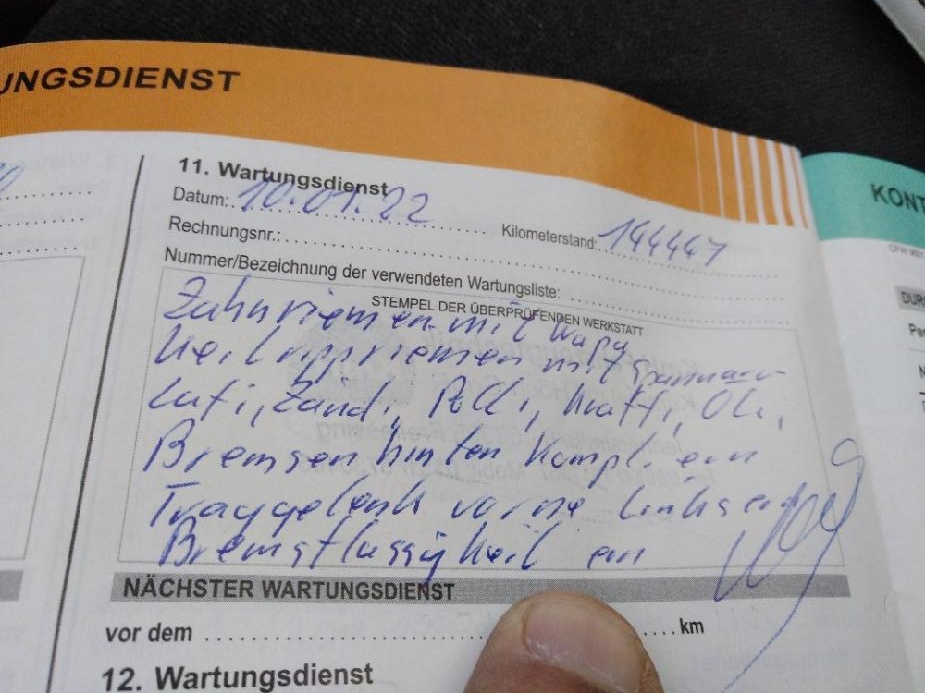 UNGSDIENST
11. Wartungsdienst
Datum: 10.01.22 Kilometerstand: 144447
Rechnungsnr.:
Nummer/Bezeichnung der verwendeten Wartungsliste:
STEMPEL DER ÜBERPRÜFENDEN WERKSTATT
Zahnriemen mit Wapu
Keilrippriemen mit Spanner
Lufi, Zünd, Polli, Kraft, Öl,
Bremsen hinten kompl. ern
Traggelenk vorne links ern
Bremsflüssigkeit ern
NÄCHSTER WARTUNGSDIENST
vor dem km
12. Wartungsdienst
KONT
DUR